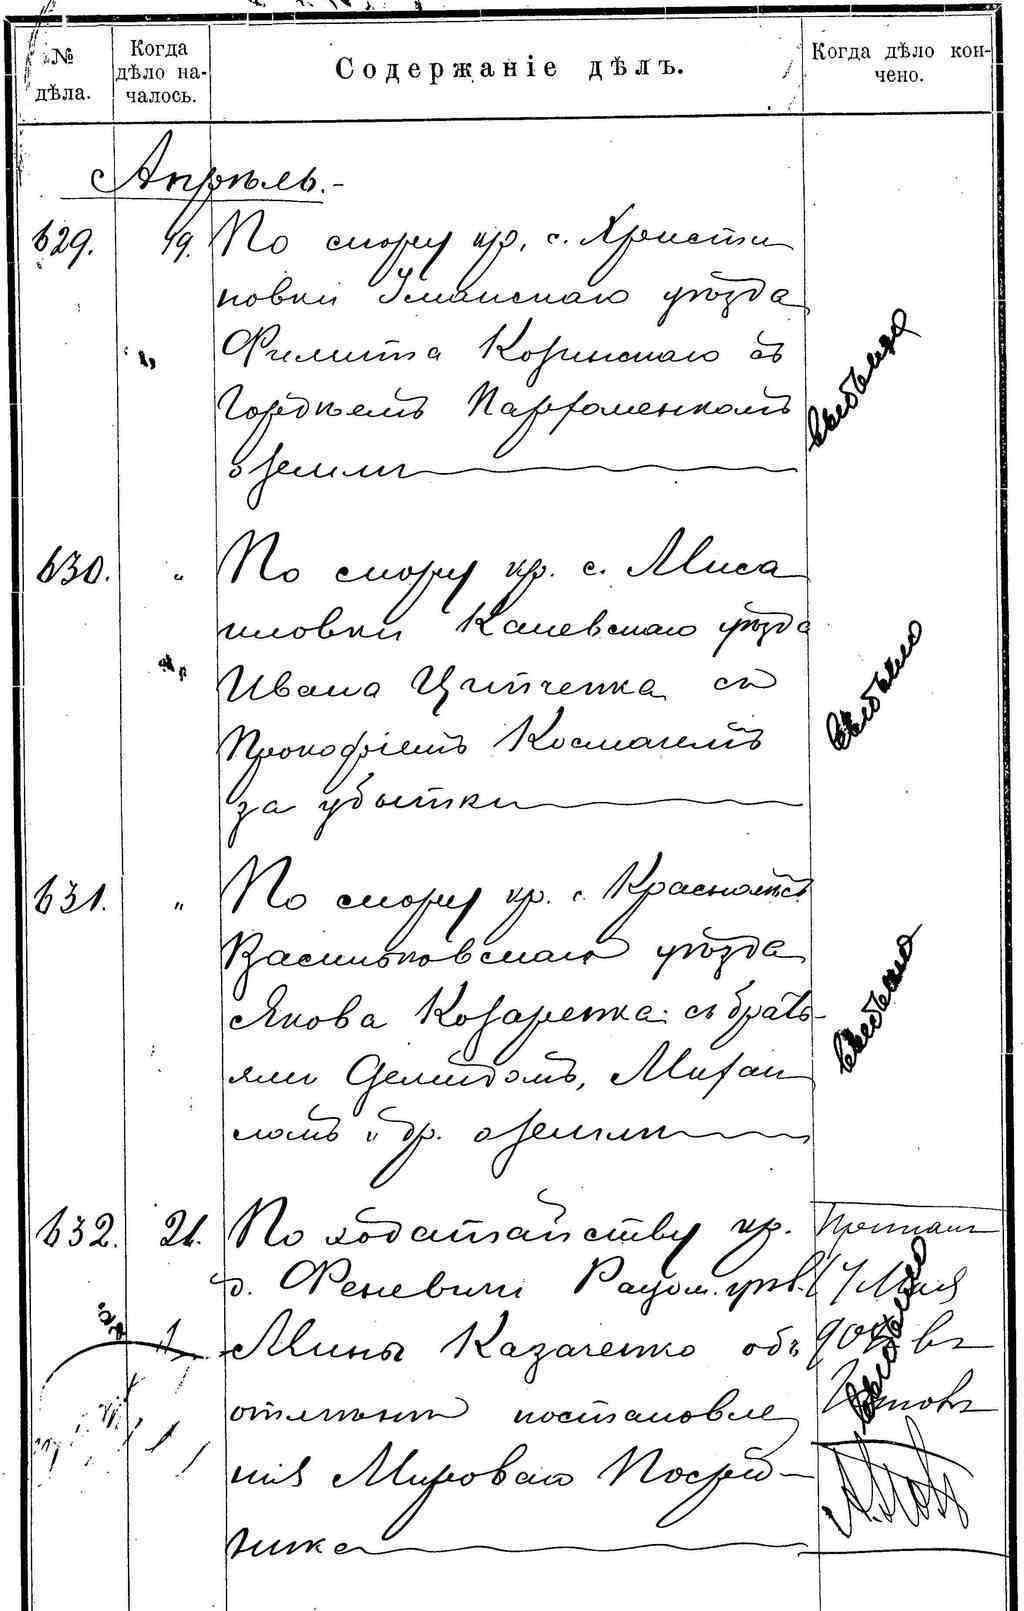 № дѣла.
Когда дѣло на-
чалось.
Содержаніе дѣлъ.
Когда дѣло кон-
чено.
Апрѣль.-
629. 19. По спору кр. с. Христи
новки Уманскаго уѣзда
Филипа Козинскаго съ
Гордѣемъ Парфоменкомъ
о землѣ
выбыло
630. " По спору кр. с. Миса
иловки Каневскаго уѣзда
Ивана Ципченка съ
Прокофіемъ Космачемъ
за убытки
выбыло
631. " По спору кр. с. Краснолѣсъ
Васильковскаго уѣзда
Якова Козаренка съ брать-
ями Демидомъ, Михаи
ломъ и др. о землѣ
выбыло
632. 21. По ходатайству кр.
д. Феневичи Радом. уѣз.
Мины Казаченко объ
отмѣнѣ постановле
нія Мироваго Посред-
ника
17 Мая
въ
выбыло